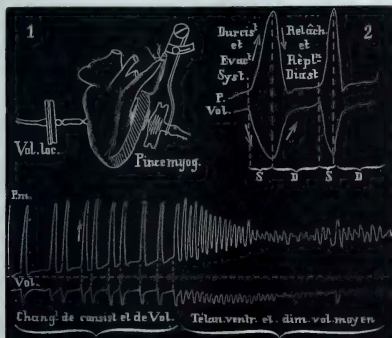 1
Vol. loc.
Pince myog.
2
Durcis.t
et
Evac.t
Syst.
Relâch.t
et
Répl.n
Diast.
P.
Vol.
S D S D
P.m.
Vol.
Chang.t de consist. et de Vol.
Tétan. ventr. et dim. vol. moyen